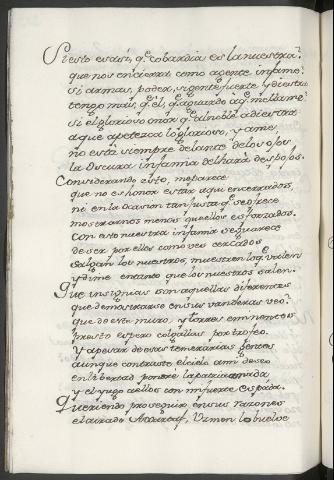 Si esto es así, q̃ cobardia es la nuestra?
que nos encierra como a gente infame?
si armas, poder, y gente fuerte y diestra
tengo mas, q̃ el, q̃ aguardo a q̃ me llame?
si el glorioso onor q̃ al noble adiestra
a que apetezca lo glorioso, y ame,
no està siempre delante de los ojos
la oscura infamia
Considerando esto, me parece
que no es honor estar aqui encerrados,
ni en la ocasion tan justa q̃ se ofrece
mostrarnos menos que ellos esforzados.
con esto nuestra infamia se
de ser por ellos como ves cercados
salgan los nuestros, muestren lo q̃ valen
y dime en tanto que los nuestros salen.
Que insignias son aquellas diferentes
que demostrarse en sus vanderas veo?
que de este muro, y torres eminentes
presto espero colgallas por trofeo.
Y a pesar de esas temerarias gentes
aunque contraste el cielo a mi deseo
en libertad pondre la patria amada
y el yugo a ellos con mi fuerte espada.
Queriendo proseguir en sus razones
el airado Uzmen lo buelve